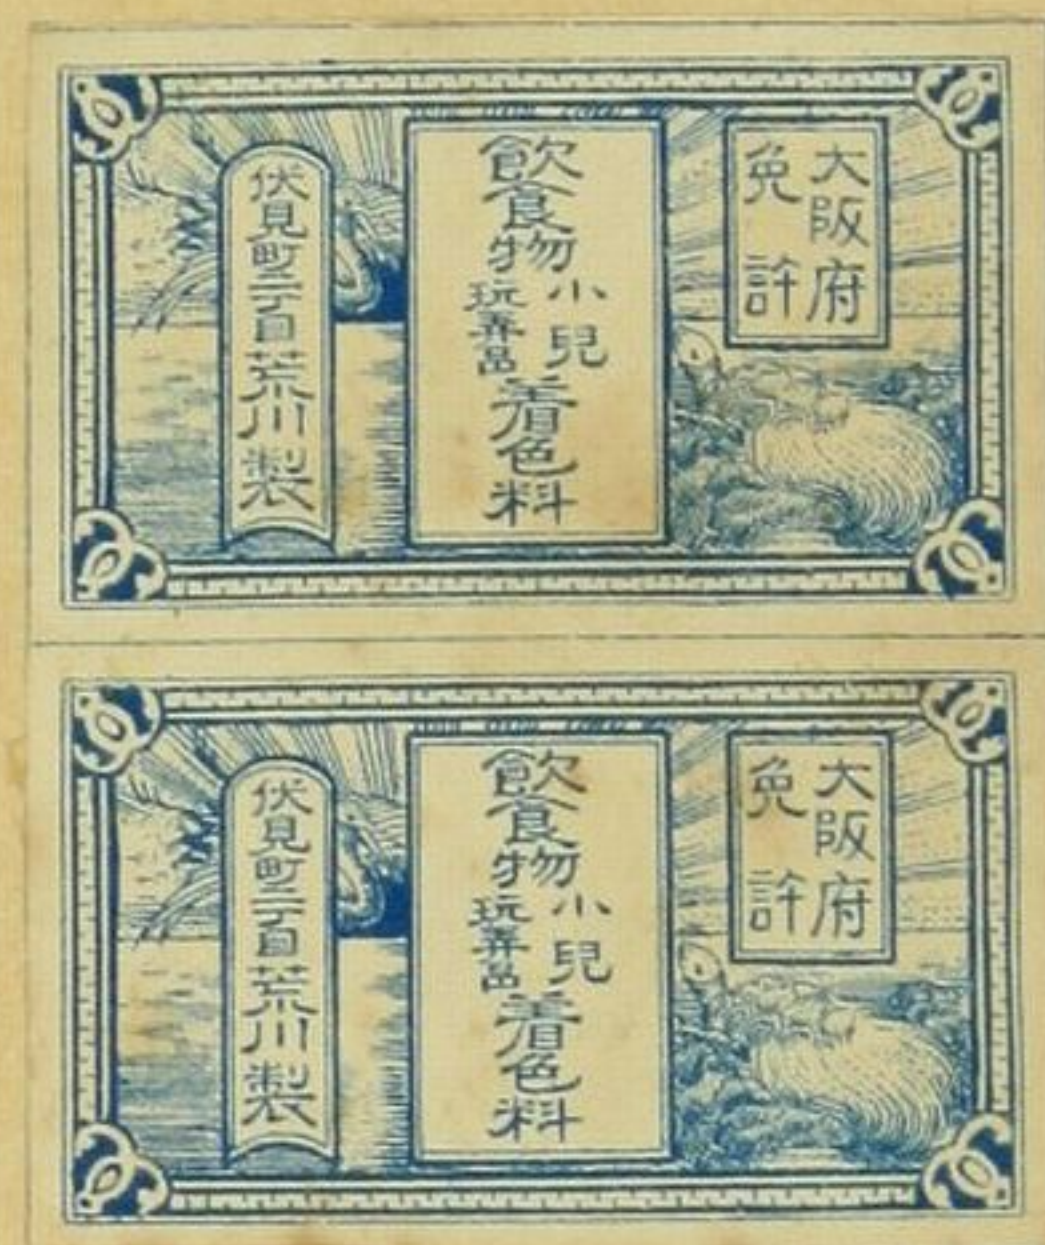 大阪府
免許
飲食物
小兒
玩弄品
着色料
伏見町二丁目荒川製
大阪府
免許
飲食物
小兒
玩弄品
着色料
伏見町二丁目荒川製